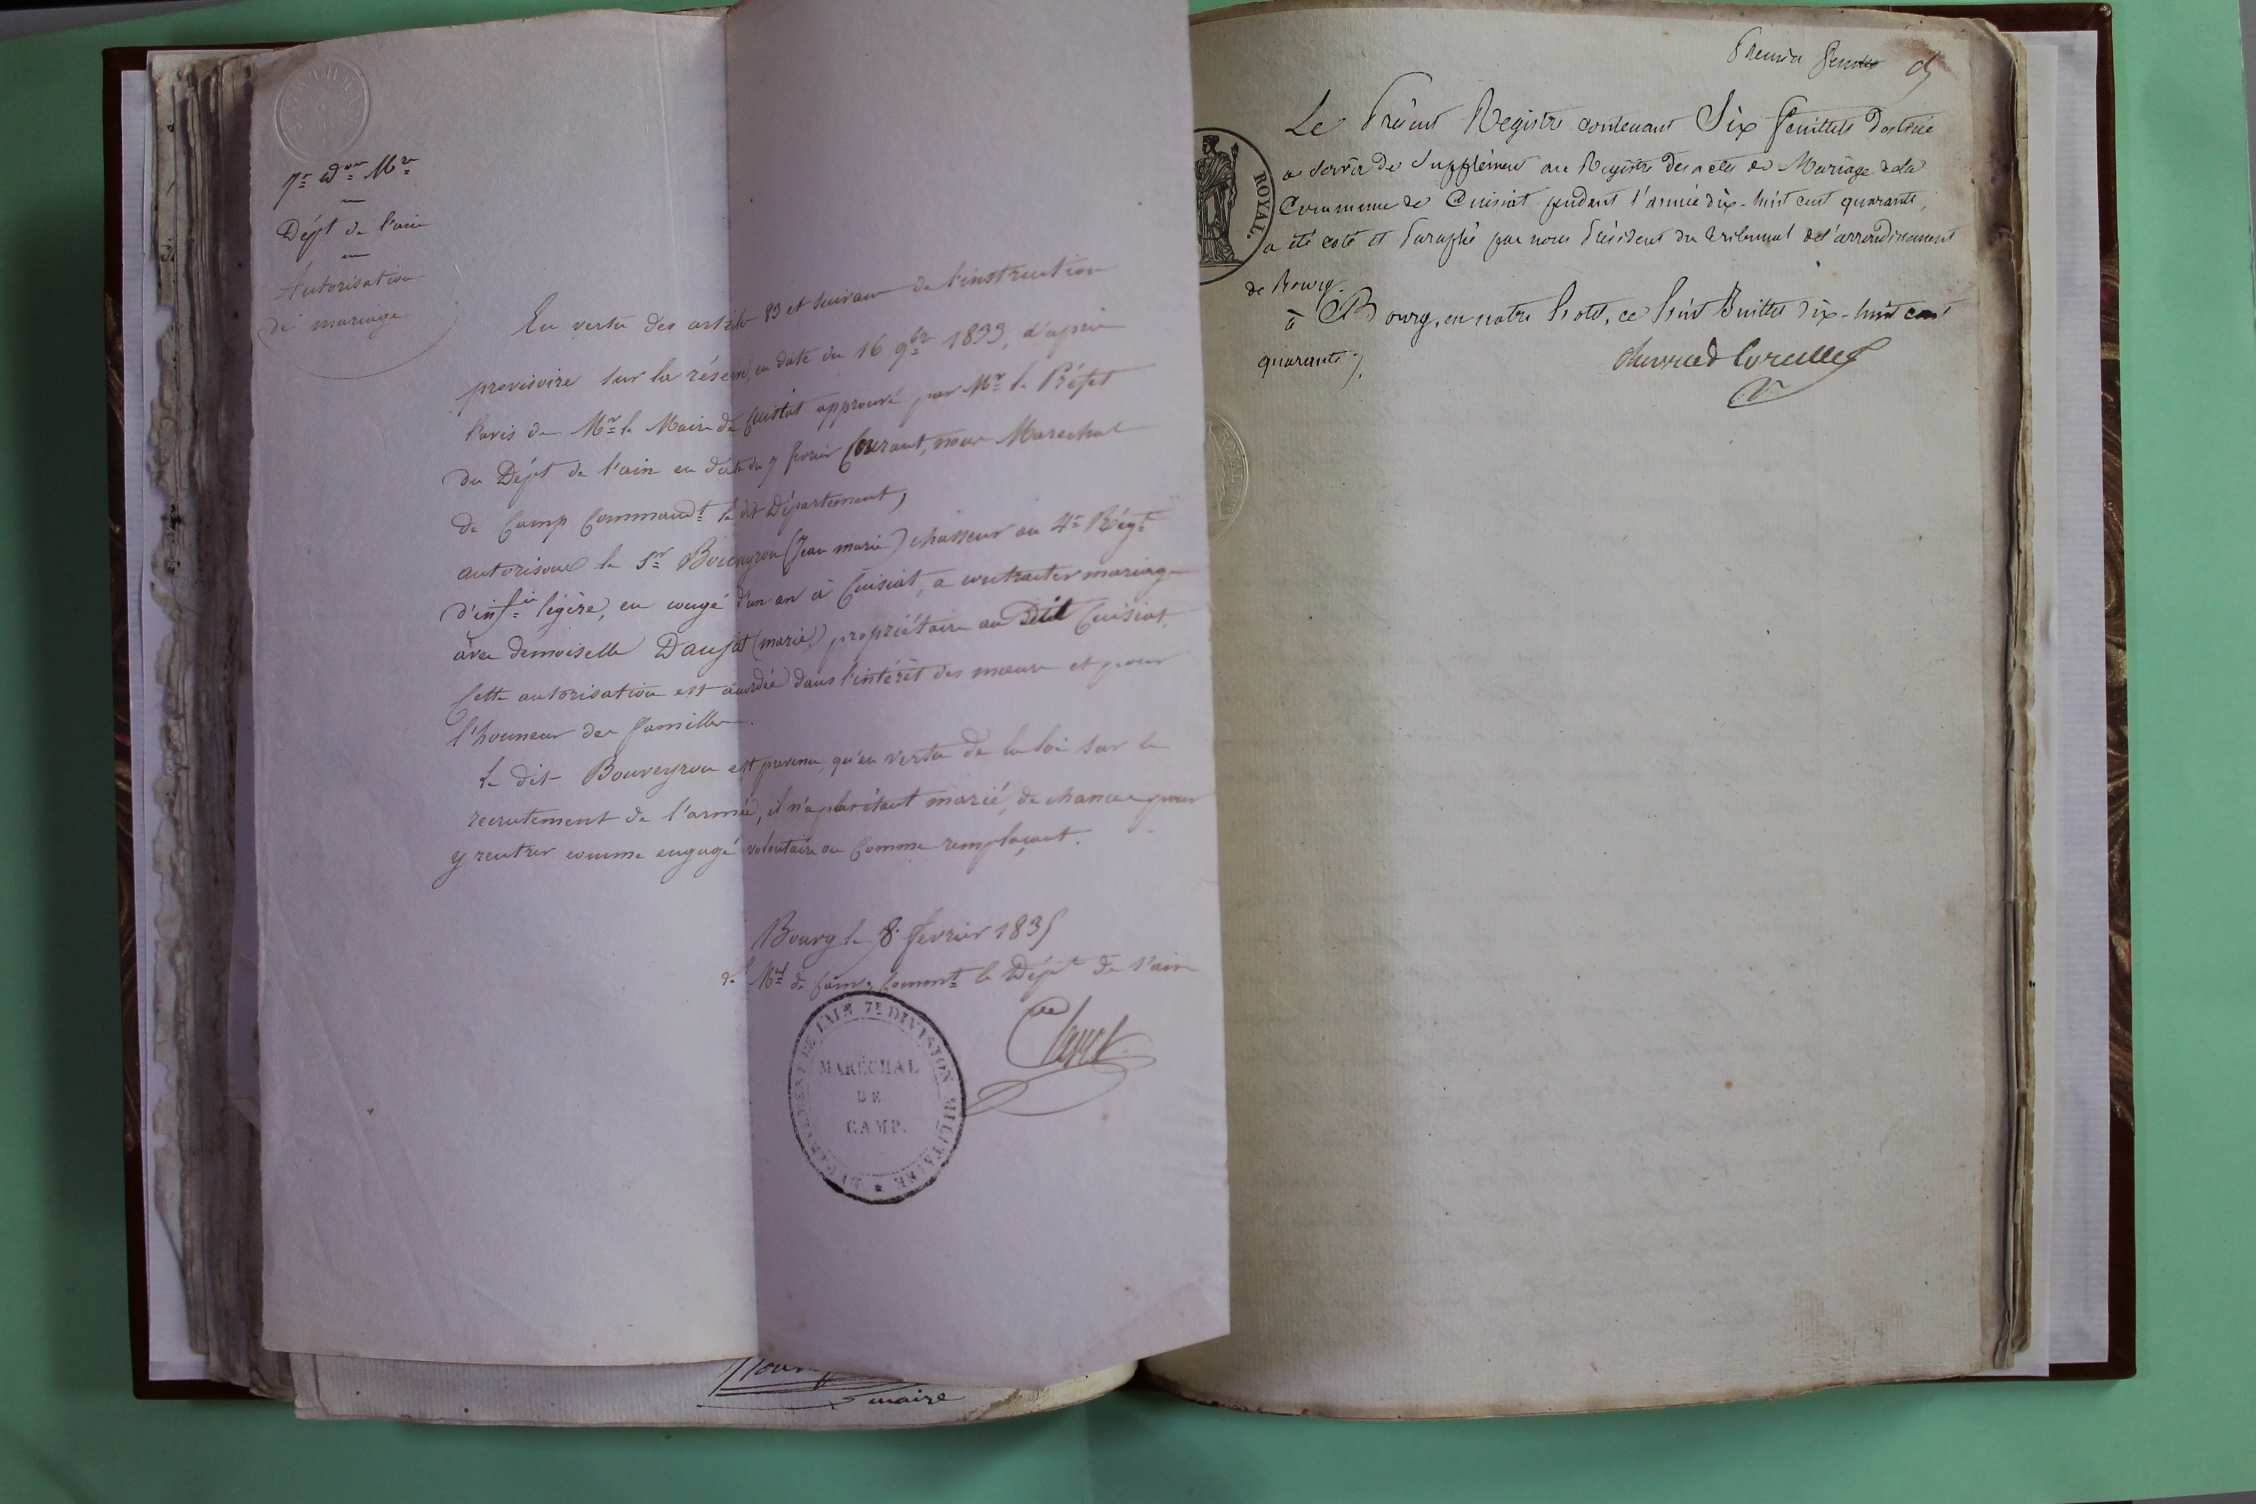 7e Don Mre
Dépt de l'ain
Autorisation
de mariage
En vertu des article 83 et suivans de l'instruction
provisoire sur la réserve, en date du 16 9bre 1833, d'après
l'avis de Mr le Maire de Cuisiat approuvé par Mr le Préfet
du Dépt de l'ain en date du 7 fevrier Courant, nous Marechal
de Camp Commandt le dit Département,
autorisons le Sr Bouveyron (Jean marie) chasseur au 4e Régt
d'infie légère, en congé d'un an à Cuisiat, a contracter mariage
avec demoiselle Daujat (marie) propriétaire au dit Cuisiat.
Cette autorisation est accordée dans l'intérêt des mœurs et pour
l'honneur des familles.
Le dit Bouveyron est prévenu, qu'en vertu de la loi sur le
recrutement de l'armée, il n'a plus étant marié, de chances pour
y rentrer comme engagé volontaire ou Comme remplaçant.
Bourg le 8 fevrier 1835
Le Mal de Camp Commt le Dépt de l'ain
DÉPARTEMENT DE L'AIN 7E DIVISION MILITAIRE
MARÉCHAL
DE
CAMP.
maire
Premier feuillet
ROYAL.
Le Présent Registre contenant Six feuillets destiné
a servir de Supplément au Registre des actes de Mariage de la
Commune de Cuisiat pendant l'année dix-huit cent quarante,
a été coté et Paraphé par nous Président du tribunal de l'arrondissement
de Bourg.
à Bourg, en notre hotel, ce huit Juillet dix-huit cent
quarante.